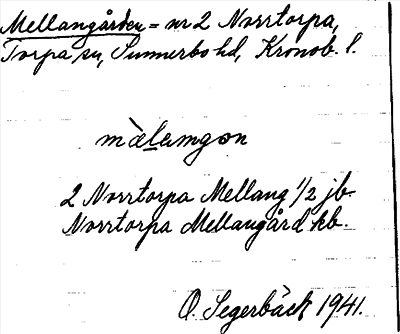 Mellangården = nr 2 Norrtorpa,
Torpa sn, Sunnerbo hd, Kronob. l.
mä̀lamgon
2 Norrtorpa Mellang 1/2 jb.
Norrtorpa Mellangård kb.
O. Segerbäck 1941.